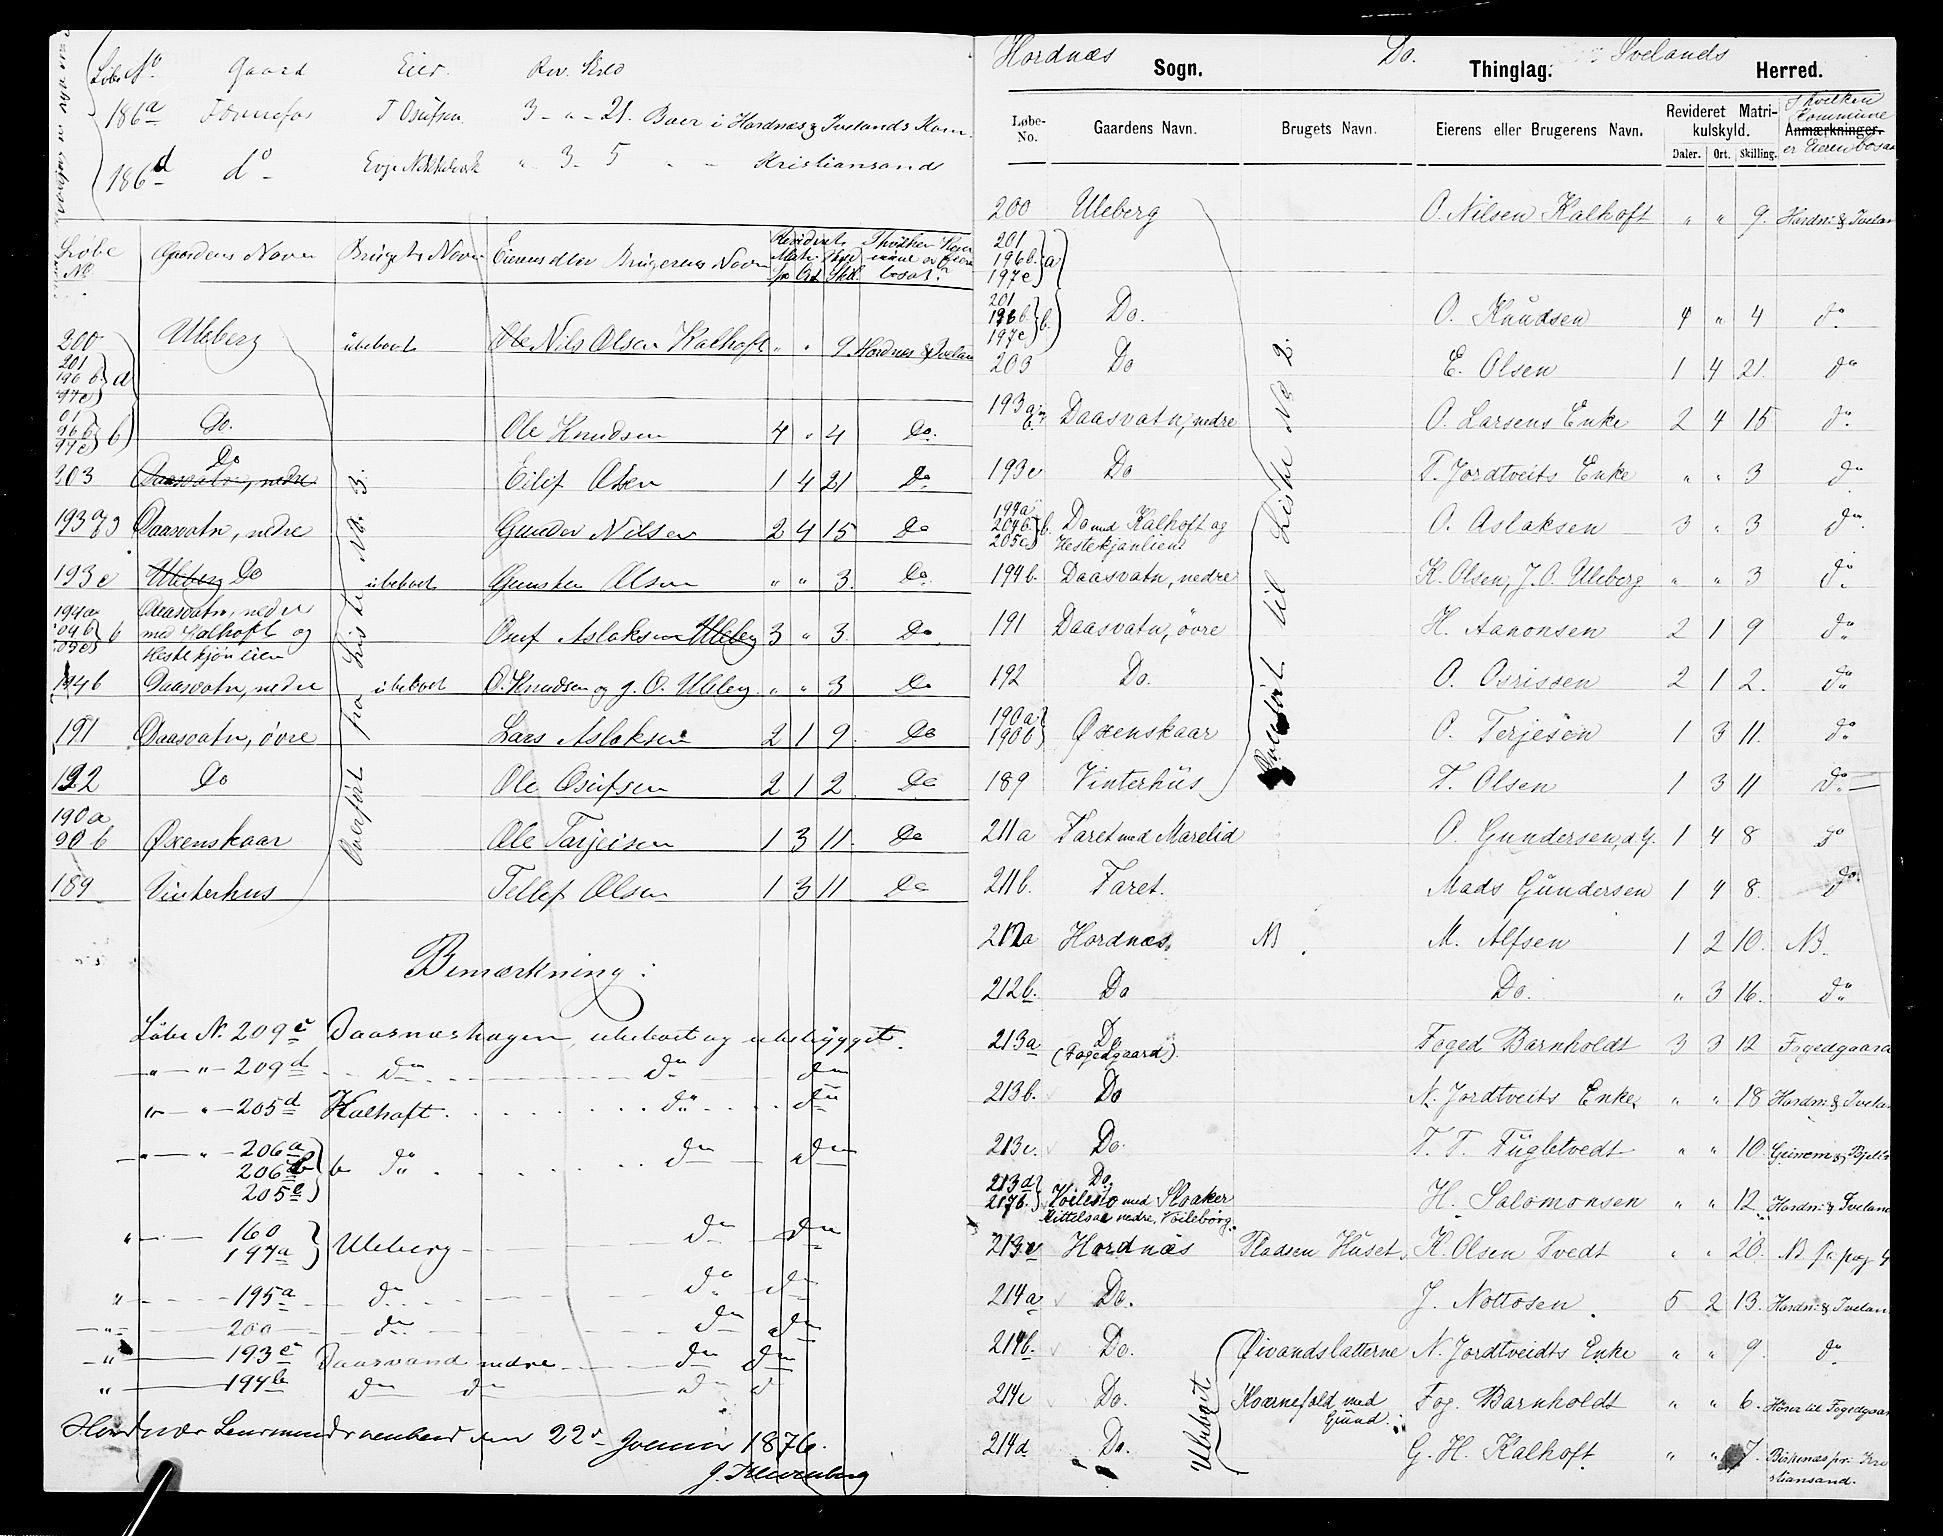 Löbe No. Gaard Eier. Rev. Skld
186a Fennefos T Osufsen 3 - " - 21. Boer i Hordnæs & Ivelands Kom.
186d do Evje Nikkelverk " 3 - 5 " - Kristiansand
Löbe No Gaardens Navn Brugets Navn Eierens eller Brugerens Navn Revideret Matr. Skyld Sp. Ort. Skil. I hvilken Kommune er Eieren bosat.
200 Uleberg ubeboet Ole Nils Olsen Kalhoft " " 9 Hordnes & Ivelan
201
196 b } a
97 e
01
96 b } b Do. Ole Knudsen 4 " 4 Do.
97 e
203 Daasvatn, nedre Do Eilef Olsen 1 4 21 Do
193 Daasvatn, nedre Gunder Nilsen 2 4 15 Do
193 e Uleberg Do ubeboet Gunsten Olsen " " 3. Do.
194a Daasvatn, nedre
204 b } b med Kalhoft og Osuf Aslaksen Uleberg 3 " 3 Do
205e Hestekjönlien
194 b Daasvatn, nedre ubeboet O. Knudsen og J. O. Uleberg " " 3 Do
191 Daasvatn, övre Lars Aslaksen 2 1 9. Do
192 Do Ole Osufsen 2 1 2 Do
190 a
90 b Øxenskaar Ole Tarjeisen 1 3 11. Do
189 Vinterhus Tellef Olsen 1 3 11 Do
Overfört fra Liste No. 3.
Bemærkning:
Löbe N. 209c Daasnæshagen, ubeboet og ubebygget.
" — " — 209d do do do
" — " — 205d Kalhoft do do
" — " — 206a
206b } b do do do
205e
" — 160
197a } Uleberg do do
" — 195a do do do
" — 200 do do do
" — 193e Daasvand nedre do do
" — 194b do do do do
Hordnæs Lensmandskontor den 22de Januar 1876.
J. Klevenberg
Hordnæs Sogn. Do. Thinglag. Ivelands Herred.
Løbe-No. Gaardens Navn. Brugets Navn. Eierens eller Brugerens Navn. Revideret Matrikulskyld. Daler. Ort. Skilling. Anmærkninger. I hvilken Kommune er Eieren bosat
200 Uleberg O. Nilsen Kalhoft " " 9. Hordn: & Ivelan
201
196b. } a
197e
201
196b. } b. Do. O. Knudsen 4 " 4 do.
197e
203 Do E. Olsen 1 4 21. do
193a Daasvatn, nedre O. Larsens Enke 2 4 15 do.
193e Do T. Jordtveits Enke " " 3 do
194a
204b. } b. Do med Kalhoft og O. Aslaksen 3 " 3 do.
205e Hestekjønlien
194b. Daasvatn, nedre K. Olsen, J. O. Uleberg " " 3 do.
191 Daasvatn, övre H. Aanonsen 2 1 9 do.
192 Do. O. Osrissen 2 1 2. do.
190a
190b } Øxenskaar O. Terjesen 1 3 11. do.
189 Vinterhus T. Olsen 1 3 11 do.
Overfört til Liste No 2.
211a Faret med Marelid O. Gundersen, d.y. 1 4 8 do
211b. Faret. Mads Gundersen 1 4 8. do.
212a Hordnæs. NB. M. Alfsen 1 2 10. NB.
212b. Do Do. " 3 16. do.
213a Do (Fogedgaard). Foged Barnholdt 3 3 12 Fogedgaard
213b. Do N. Jordtveits Enke. " " 18 Hordn: & Ivelan
213c. Do. T. T. Fugletvedt " " 10. Grinem & Bjell
213d Do.
217b. } Voilesto med Skoaker H. Salomonsen " " 12. Hordn: & Iveland
Kittelsaa nedre, Voileborg.
213e Hordnæs Pladsen Huset. K. Olsen Tvedt " " 20. NB. pag 4
214a Do. J. Nottosen. 5 2 13. Hordn: & Ivelan
214b. Do. Øivandslatterne N. Jordtveidts Enke " " 9. do
214c Do. Kvernefald med Grund. Fog. Barnholdt " " 6. Hörer til Fogedgaar
214d Do. G. H. Kalhoft " " 7. Birkenæs pr: Kristiansand.
Ubeboet